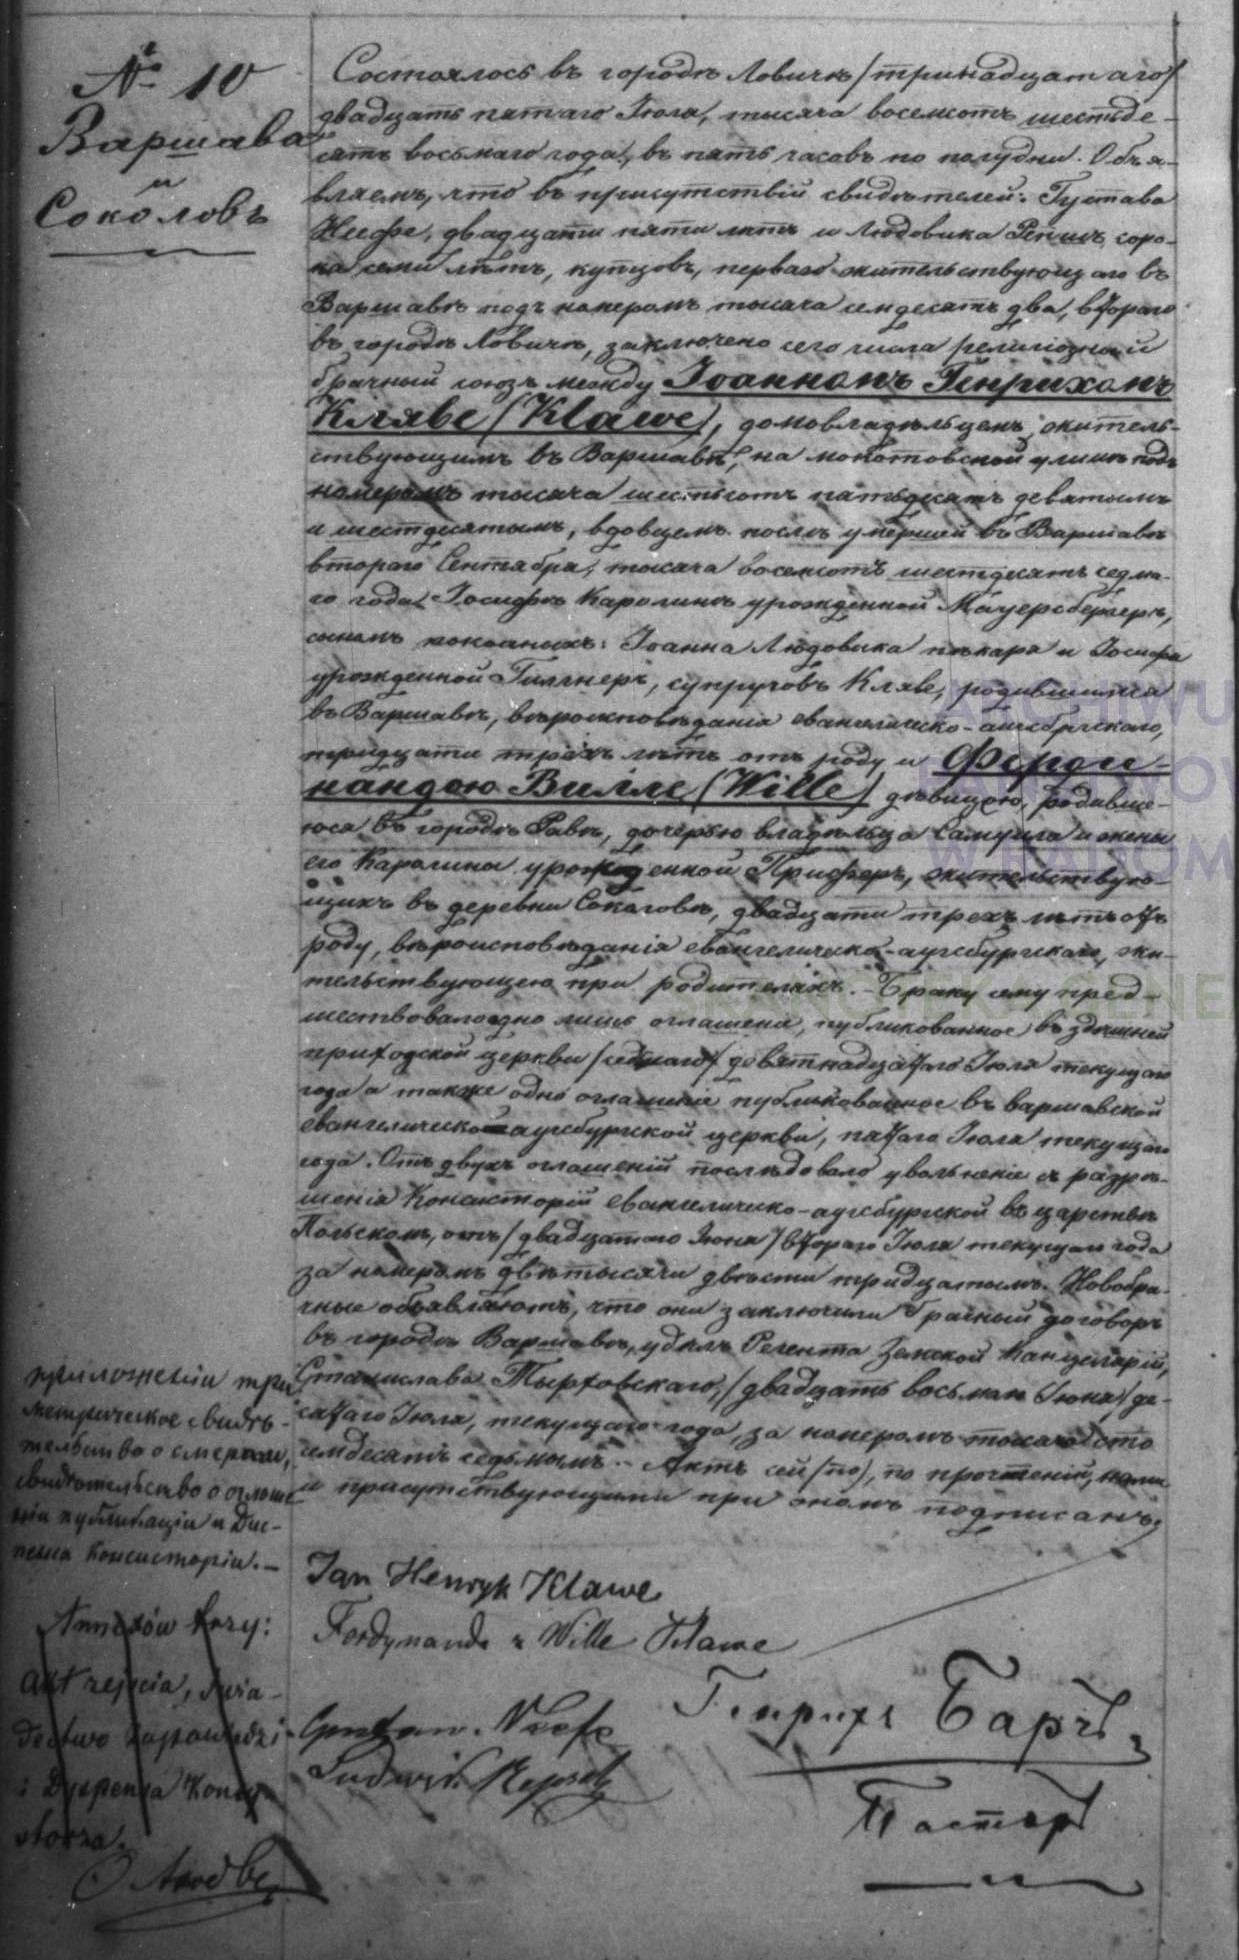 № 10
Варшава
и
Соколовъ
Состоялось въ городѣ Ловичѣ /тринадцатаго/
двадцать пятаго Іюля, тысяча восемьсотъ шестьде-
сятъ восьмаго года, въ пять часовъ по полудни. Объя-
вляемъ, что въ присутствіи свидѣтелей: Густава
Неефе, двадцати пяти лѣтъ и Людовика соро-
ка семи лѣтъ, купцовъ, перваго жительствующаго въ
Варшавѣ подъ номеромъ тысяча семдесятъ два, втораго
въ городѣ Ловичѣ, заключено сего числа религіозный
брачный союзъ между Іоанномъ Генрихомъ
Кляве (Klawe), домовладѣльцемъ, житель-
ствующимъ въ Варшавѣ, на мокотовской улицѣ подъ
номеромъ тысяча шестьсотъ пятьдесятъ девятымъ
и шестдесятымъ, вдовцемъ послѣ умершей въ Варшавѣ
втораго Сентября, тысяча восемсотъ шестдесятъ седма-
го года, Іосифѣ Каролинѣ урожденной Мауерсбергеръ,
сыномъ покойныхъ: Іоанна Людовика пекаря и Іосифы
урожденной супруговъ Кляве, родившимся
въ Варшавѣ, вѣроисповѣданія евангелическо-аугсбургскаго,
тридцати трехъ лѣтъ отъ роду и Ферди-
нандою Вилле (Wille) дѣвицою, родивше-
юся въ городѣ Равѣ, дочерью владѣльца Самуила и жены
его Каролины урожденной жительствую-
щихъ въ деревни Соколовѣ, двадцати трехъ лѣтъ отъ
роду, вѣроисповѣданія евангелическо-аугсбургскаго, жи-
тельствующею при родителяхъ. – Браку сему пред-
шествовало одно лишь оглашеніе, публикованное въ здѣшней
приходской церкви /седмаго/ девятнадцатаго Іюля текущаго
года а также одно оглашеніе публикованное въ варшавской
евангелическо аугсбургской церкви, пятаго Іюля текущаго
года. Отъ двухъ оглашеній послѣдовало увольненіе съ разрѣ-
шенія Консисторіи евангелическо-аугсбургской въ царствѣ
Польскомъ, отъ /двадцатаго Іюня/ втораго Іюля текущаго года
за номеромъ двѣ тысячи двѣсти тридцатымъ. Новобра-
чные объявляютъ, что они заключили брачный договоръ
въ городѣ Варшавѣ, у Регента Земской Канцеляріи,
Станислава /двадцать восьмаго Іюня/ де-
сятаго Іюля, текущаго года, за номеромъ тысяча сто
семдесятъ седьмымъ. – Актъ сей по прочтеніи, нами
и присутствующими при ономъ подписанъ.
приложенія три
метрическое свидѣ-
тельство о смерти,
свидѣтельство о оглаше
ніи публикаціи и Дис-
пенса Консисторіи. –
Annexów trzy:
akt zejścia, świa-
dectwo zapowiedzi
i Dyspensa Konsy
storza.
Jan Henryk Klawe
Ferdynanda z Wille Klawe
Gustaw Neefe
Ludwik
Генрихъ Барчъ
Пасторъ
ARCHIWU
W RADOM